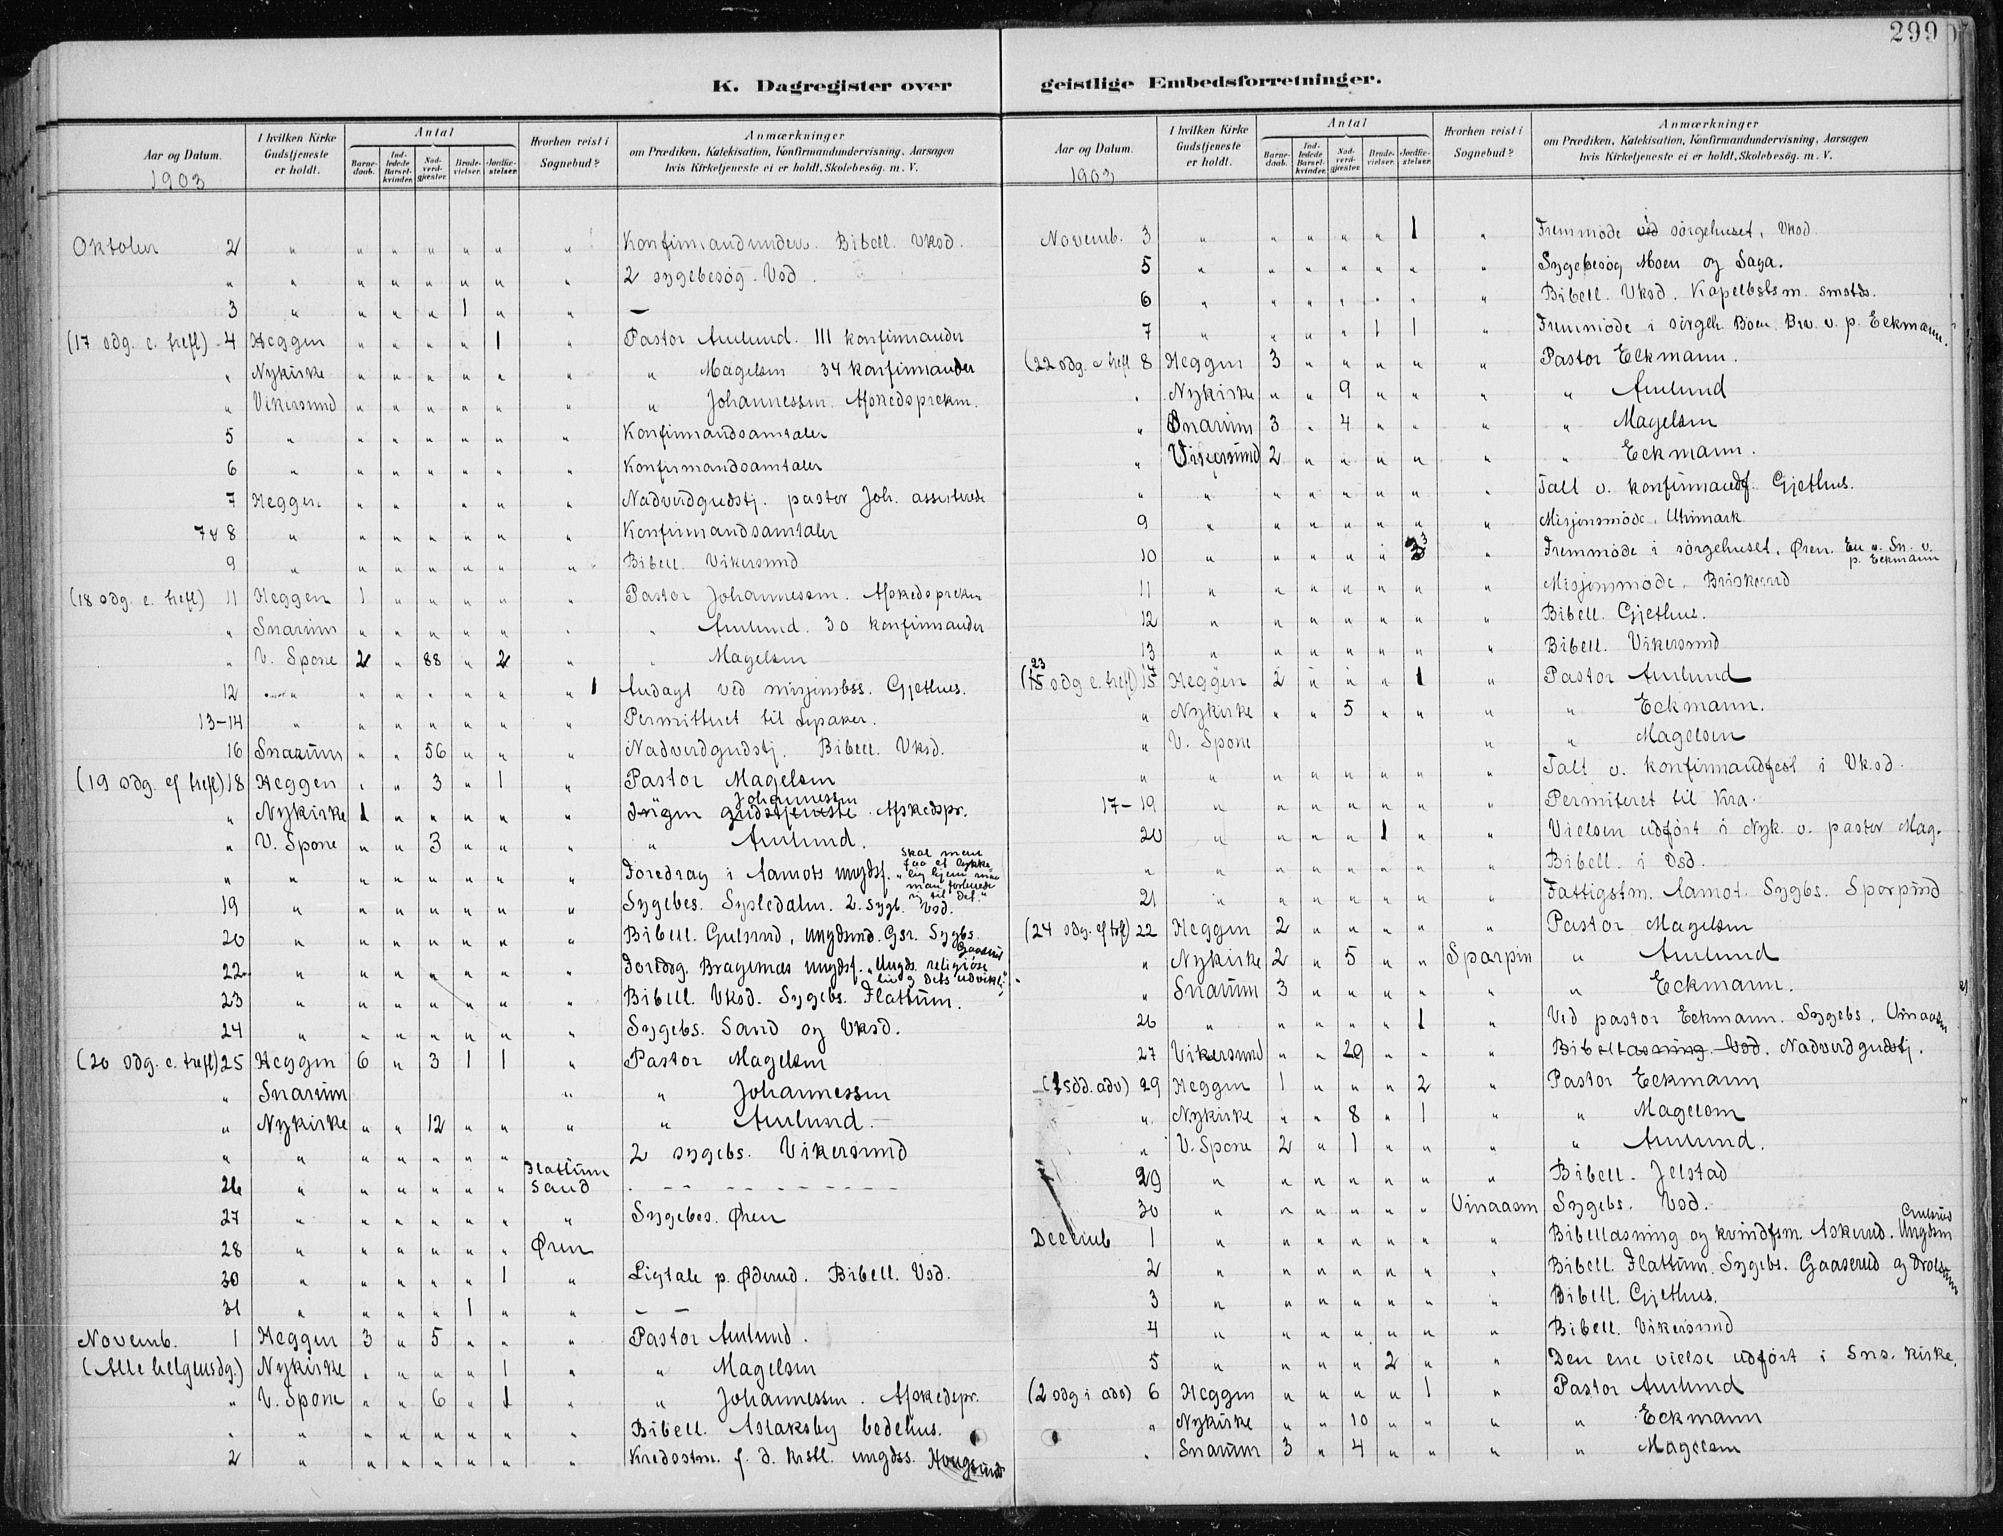 299
K. Dagregister over geistlige Embedsforretninger.
Aar og Datum. 1903 | I hvilken Kirke Gudstjeneste er holdt. | Antal | Barnedaab. | Indledede Barselkvinder. | Nadverdgjester. | Brudevielser. | Jordfæstelser. | Hvorhen reist i Sognebud? | Anmærkninger om Prædiken, Katekisation, Konfirmandundervisning, Aarsagen hvis Kirketjeneste ei er holdt, Skolebesøg. m. V.
Oktober 2 " " " " " " " Konfirmandunderv. Bibell. Vksd.
" " " " " " " " 2 sygebesøg. Vsd.
3 " " " " 1 " " —
(17 sdg. e. trefl) 4 Heggen " " " " 1 " Pastor Amlund. 111 konfirmander
" Nykirke " " " " " " " Magelsen 34 konfirmander
" Vikersund " " " " " " " Johannessen. Afskedsprekn.
5 " " " " " " " Konfirmandsamtaler
6 " " " " " " " Konfirmandsamtaler
7 Heggen " " " " " Nadverdgudstj. pastor Joh. assisterede
7 & 8 " " " " " " " Konfirmandsamtaler
9 " " " " " " " Bibell. Vikersund
(18 sdg. e. trefl) 11 Heggen 1 " " " " " Pastor Johannessen. Afskedspreken
" Snarum " " " " " " " Amlund. 30 konfirmander
" V. Spone 2 " 88 " 2 " " Magelsen
12 " " " " " " " 1 Andagt ved misjonsbss. Gjethus.
13-14 " " " " " " " Permitteret til Lysaker.
16 Snarum " " 56 " " " Nadverdgudstj. Bibell. Vksd.
(19 sdg. ef trefl) 18 Heggen " " 3 " 1 " Pastor Magelsen
" Nykirke 1 " " " " " Ingen gudstjeneste Johannessen Afskedspr.
" V. Spone " " 3 " " " " Amlund.
" " " " " " " " Foredrag i Aamots ungdsf. "Skal man faa et lykkelig hjem maa man forberede sig til det."
19 " " " " " " " Sygebes. Sysledalen. 2. sygb. Vsd.
20 " " " " " " " Bibell. Gulsrud, ungdsmd. Gsr. Sygbs. Gaaserud
22 " " " " " " " Foredrg. Bragernæs ungdsf. "Ungds. religiøse liv og dets udvikl."
23 " " " " " " " Bibell. Vksd. Sygebs. Flattum.
24 " " " " " " " Sygebs. Sand og Vksd.
(20 sdg. e. trefl) 25 Heggen 6 " 3 1 1 " Pastor Magelsen
" Snarum " " Johannessen
" Nykirke " " 12 " " " " Amlund.
" " " " " " " 2 sygebs. Vikersund
26 " " " " " " Flattum Sand - - - - - - - -
27 " " " " " " " Sygebes. Øren
28 " " " " " " Øren
30 " " " " " 1 " Ligtale p. Øderud. Bibell. Vsd.
31 " " " " 1 " " — —
Novemb. 1 Heggen 3 " 5 " " " Pastor Amlund.
(Alle helgensdg.) Nykirke " " " " 1 " " Magelsen
" V. Spone " " 6 " 1 " " Johannessen. Afskedspr.
" " " " " " " " Bibell. Aslaksby bedehus.
2 " " " " " " " Kredsstm. f. d. krstl. ungdss. Hougsund
Aar og Datum. 1903 | I hvilken Kirke Gudstjeneste er holdt. | Antal | Barnedaab. | Indledede Barselkvinder. | Nadverdgjester. | Brudevielser. | Jordfæstelser. | Hvorhen reist i Sognebud? | Anmærkninger om Prædiken, Katekisation, Konfirmandundervisning, Aarsagen hvis Kirketjeneste ei er holdt, Skolebesøg. m. V.
Novemb. 3 " " " " " 1 " Fremmøde ved sørgehuset, Vksd.
5 " " " " " " " Sygebesøg Moen og Saga.
6 " " " " " " " Bibell. Vksd. Kapelbstsm. smstds.
7 " " " " 1 1 " Fremmøde i sørgeh. Boen. Brv. v. p. Eckmann.
(22 sdg. e trefl 8 Heggen 3 " " " " " Pastor Eckmann.
" Nykirke " " 9 " " " " Amlund
" Snarum 3 " 4 " " " " Magelsen
" Vikersund 2 " " " " " " Eckmann.
" " " " " " " " Talt v. konfirmandf. Gjethus.
9 " " " " " " " Misjonsmøde, Uhimark
10 " " " " " 3 " Fremmøde i sørgehuset, Øren. En v. Sn. v. p. Eckmann
11 " " " " " " " Misjonsmøde. Briskerud
12 " " " " " " " Bibell. Gjethus.
13 " " " " " " " Bibell. Vikersund
(23 sdg e. trefl) 15 Heggen 2 " " " 1 " Pastor Amlund
" Nykirke " " 5 " " " " Eckmann.
" V. Spone " " Magelsen
" " " " " " " " Talt v. konfirmandfest i Vksd.
17-19 " " " " " " " Permiteret til Kra.
20 " " " " 1 " " Vielsen udført i Nyk. v. pastor Mag.
" " " " " " " " Bibell. i Vsd.
21 " " " " " " " Fattigstm. Aamot. Sygbs. Sporpind
(24 sdg. ef trf) 22 Heggen 2 " " " " " Pastor Magelsen
" Nykirke 2 " 5 " " Sparpin " Amlund
" Snarum 3 " " " " " " Eckmann.
26 " " " " " 1 " Ved pastor Eckmann. Sygebs. Vinaasen
27 Vikersund " " 29 " " " Bibellæsning Vsd. Nadverdgudstj.
(1 sdd. adv) 29 Heggen 1 " " " 2 " Pastor Eckmann
" Nykirke " " 8 " 1 " " Magelsen
" V. Spone 2 " 1 " " " " Amlund.
29 " " " " " " " Bibell. Jelstad
30 " " " " " " Vinaasen Sygebs. Vsd.
Decemb 1 " " " " " " " Bibellæsning og kvindfsm. Askerud. Ungdsm Gulsrud
2 " " " " " " " Bibell. Flattum. Sygebs. Gaaserud og Drolsum
3 " " " " " " " Bibell. Gjethus.
4 " " " " " " " Bibell. Vikersund
5 " " " " 2 " " Den ene vielse udført i Sns. kirke.
(2 sdg i adv) 6 Heggen " " " " 1 " Pastor Amlund
" Nykirke " " 10 " " " " Eckmann
" Snarum 3 " 4 " " " " Magelsen